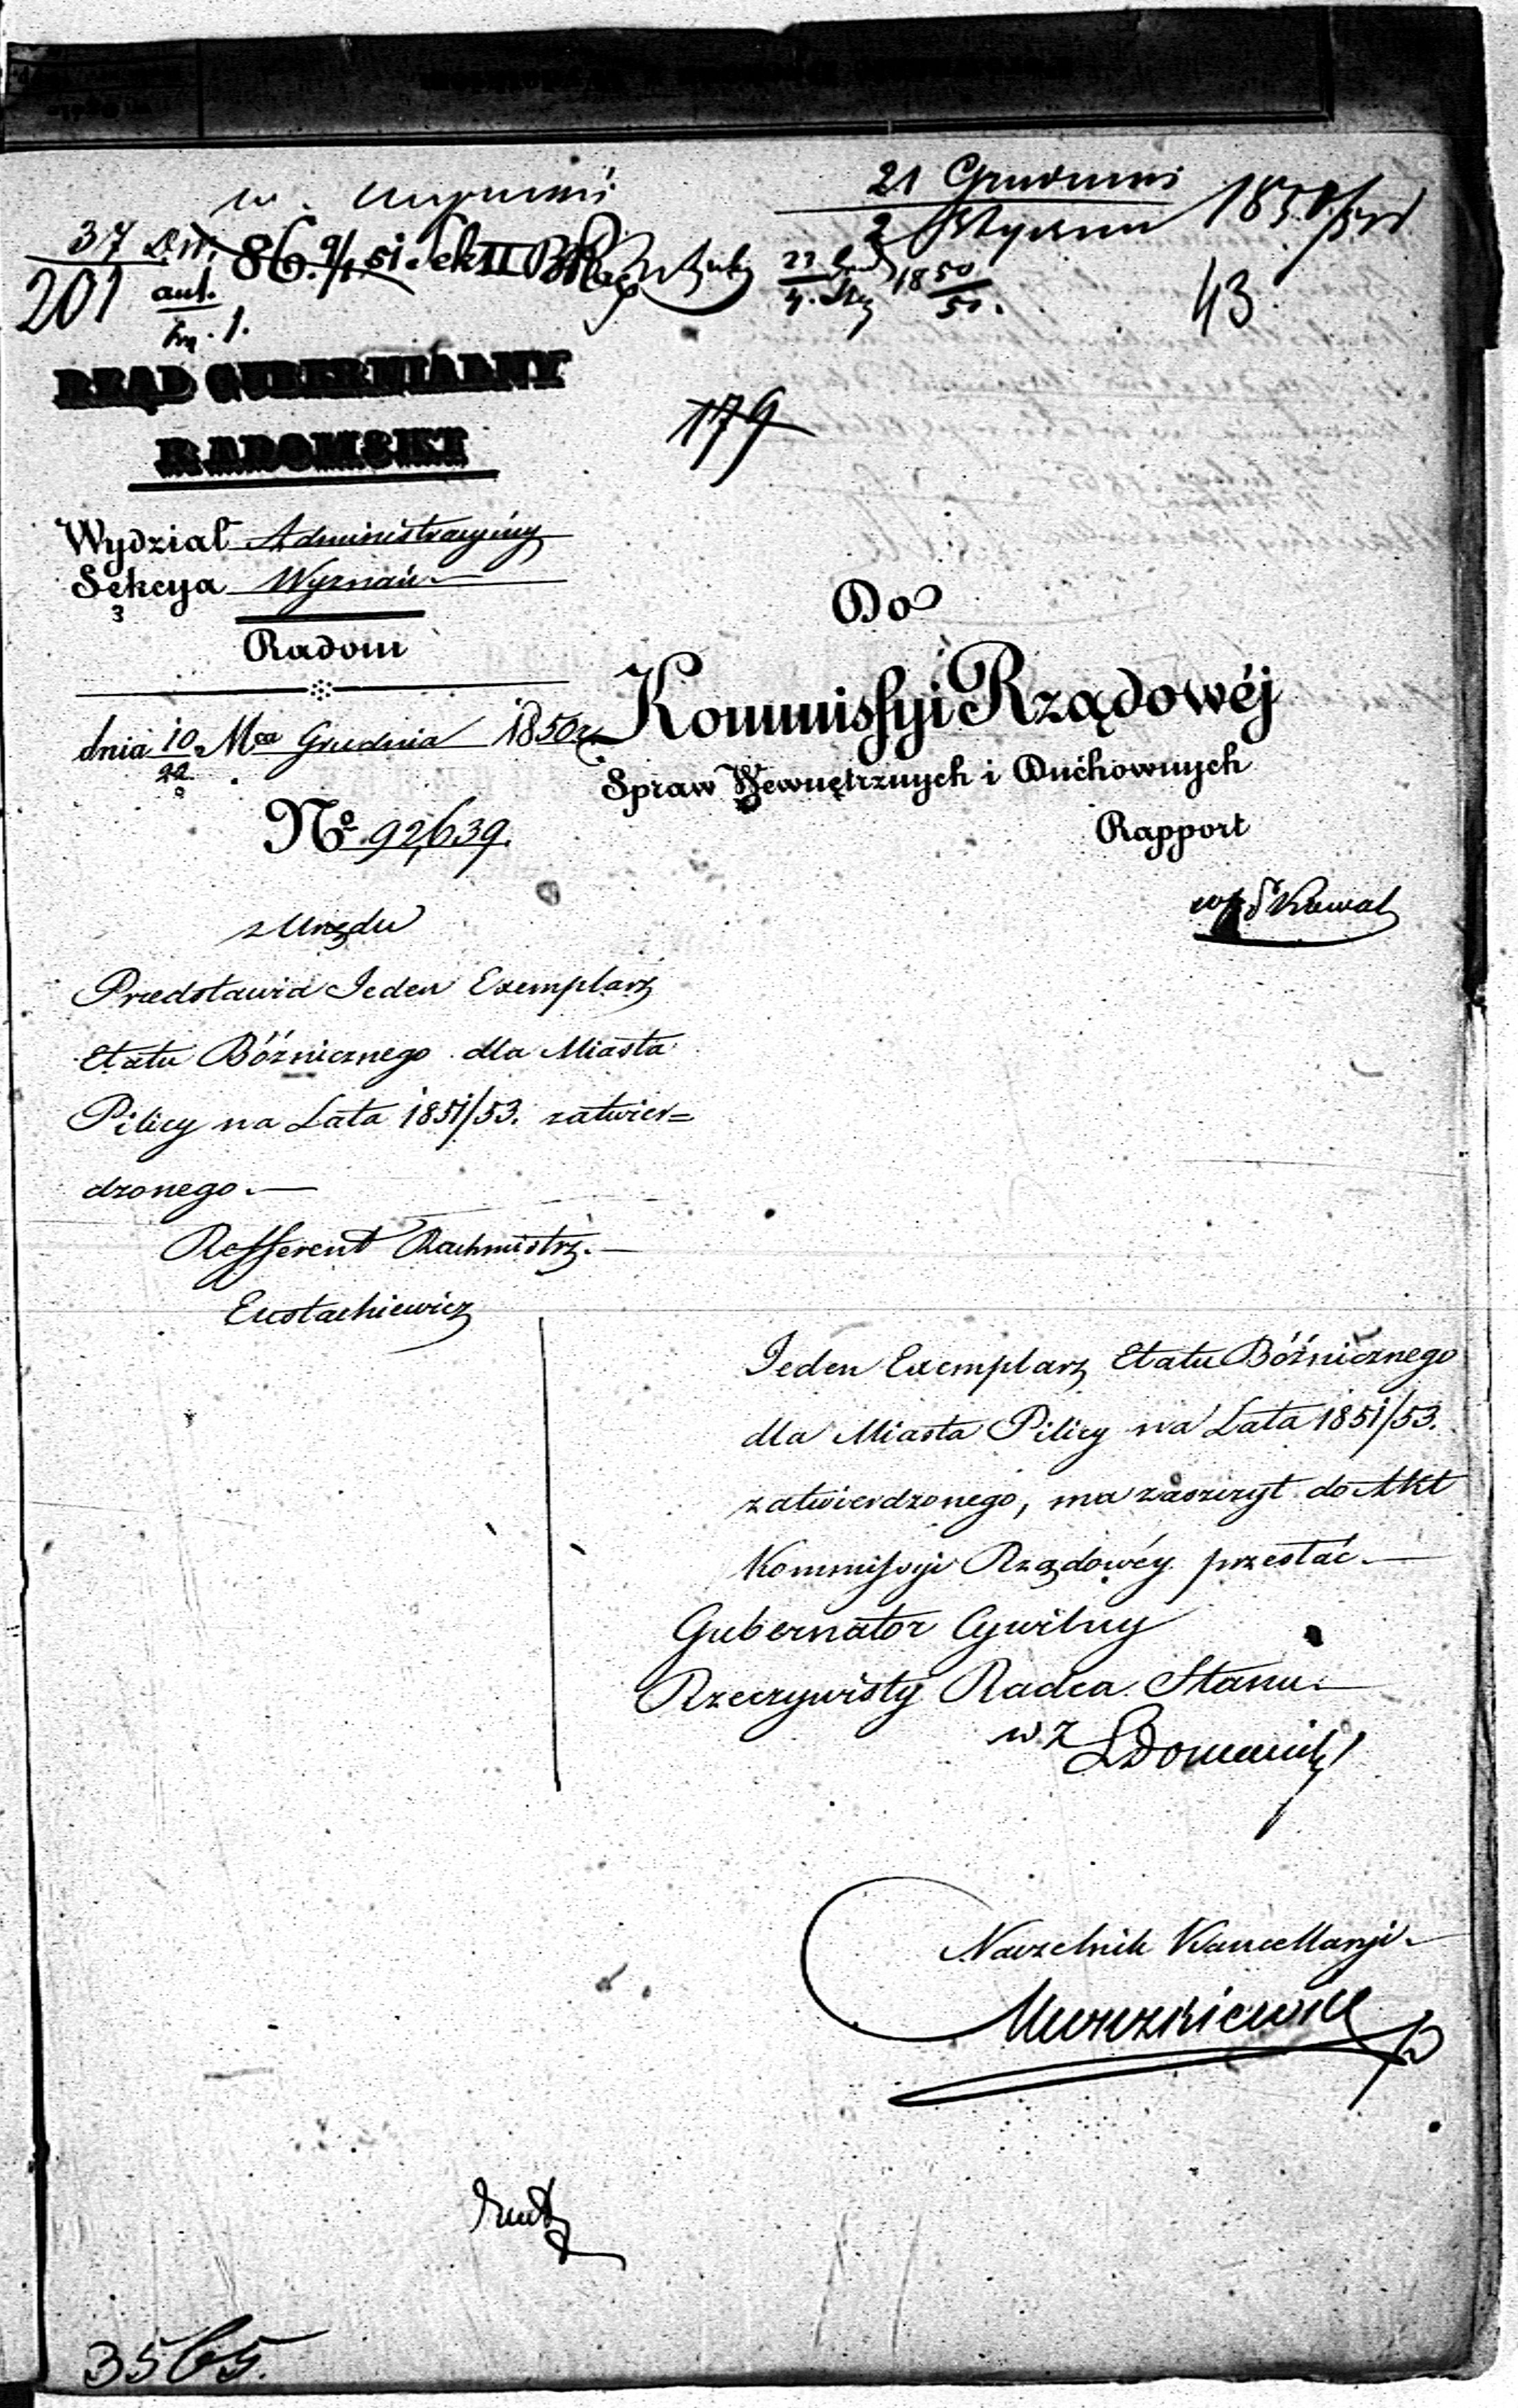 21 Grudnia
2 Stycznia 1850/51
37
201
86. 9/1 51. Sek II
23
4. 1850
51.
43
RZĄD GUBERNIALNY
RADOMSKI
179
Wydział Administracyjny
Sekcya Wyznań
3
Radom
dnia 10 Mca Grudnia 1850 r.
22
No 92,639.
Do
Kommissyi Rządowéj
Spraw Wewnętrznych i Duchownych
Rapport
z Urzędu
Przedstawia Jeden Exemplarz
Etatu Bóżnicznego dla Miasta
Pilicy na Lata 1851/53. zatwier=
dzonego.—
Refferent Rachmistrz.—
Eustachiewicz
Jeden Exemplarz Etatu Bóżnicznego
dla Miasta Pilicy na Lata 1851/53.
zatwierdzonego, ma zaszczyt do Akt
Kommissyi Rządowéy przesłać.—
Gubernator Cywilny
Rzeczywisty Radca Stanu.—
w z
Naczelnik Kancellaryi.
3565.